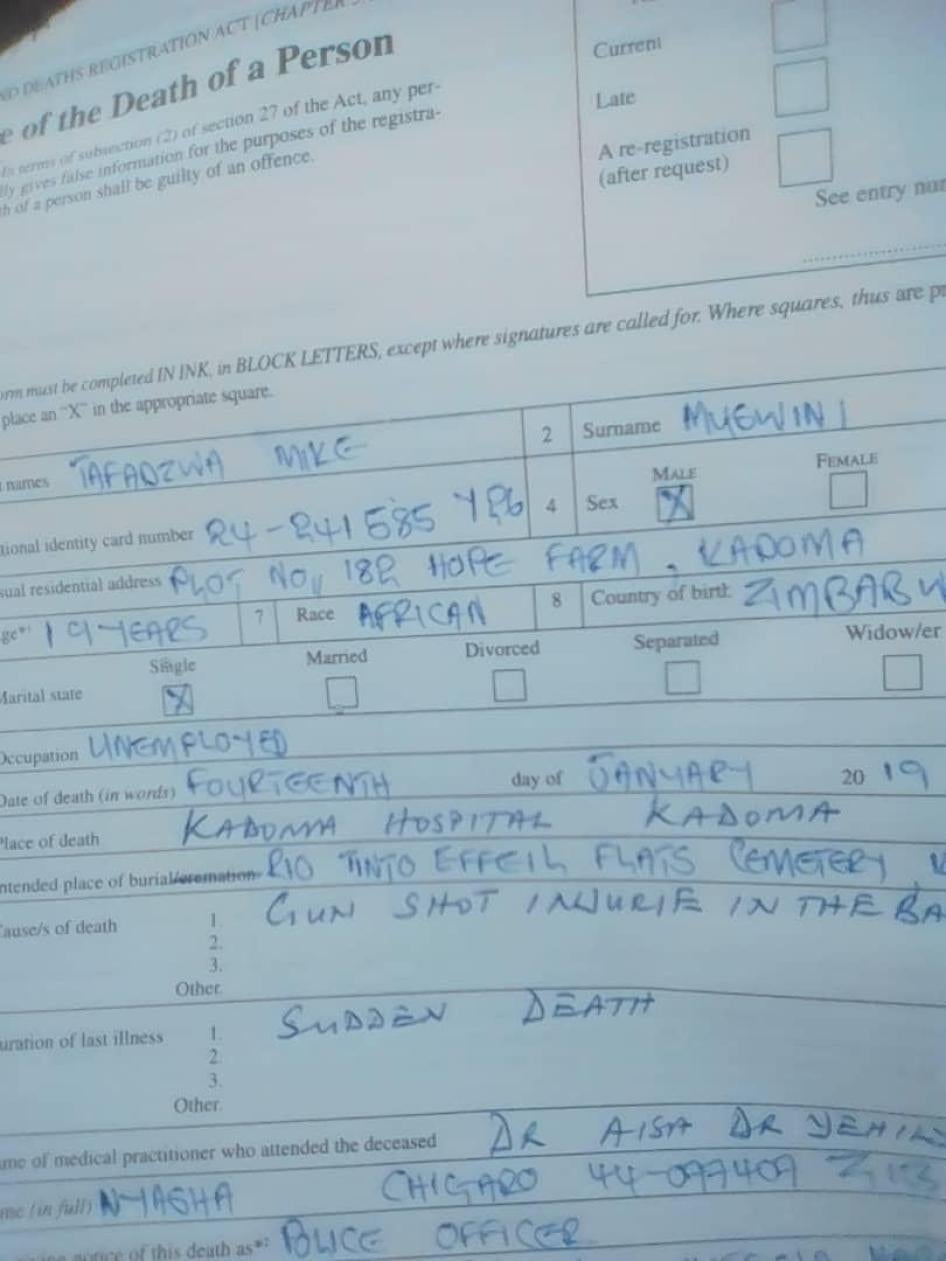 ND DEATHS REGISTRATION ACT [CHAPTER
e of the Death of a Person
In terms of subsection (2) of section 27 of the Act, any per-
lly gives false information for the purposes of the registra-
h of a person shall be guilty of an offence.
Current
Late
A re-registration
(after request)
See entry nu
orm must be completed IN INK, in BLOCK LETTERS, except where signatures are called for. Where squares, thus are pr
place an "X" in the appropriate square.
names TAFADZWA MIKE 2 Surname
4 Sex MALE X FEMALE
tional identity card number 24-241585
sual residential address PLOT No, 182 HOPE FARM, KADOMA
ge*¹ 19 YEARS 7 Race AFRICAN 8 Country of birth ZIMBABW
Marital state Single X Married Divorced Separated Widow/er
Occupation UNEMPLOYED
Date of death (in words) FOURTEENTH day of JANUARY 20 19
Place of death KADOMA HOSPITAL KADOMA
ntended place of burial/cremation RIO TINTO EFFEIL FLATS CEMETERY
Cause/s of death 1. GUN SHOT INJURIE IN THE BA
2.
3.
Other.
uration of last illness 1. SUDDEN DEATH
2.
3.
Other.
ame of medical practitioner who attended the deceased DR AISA DR
me (in full) NYASHA CHIGARO 44-097409
notice of this death as*² POLICE OFFICER